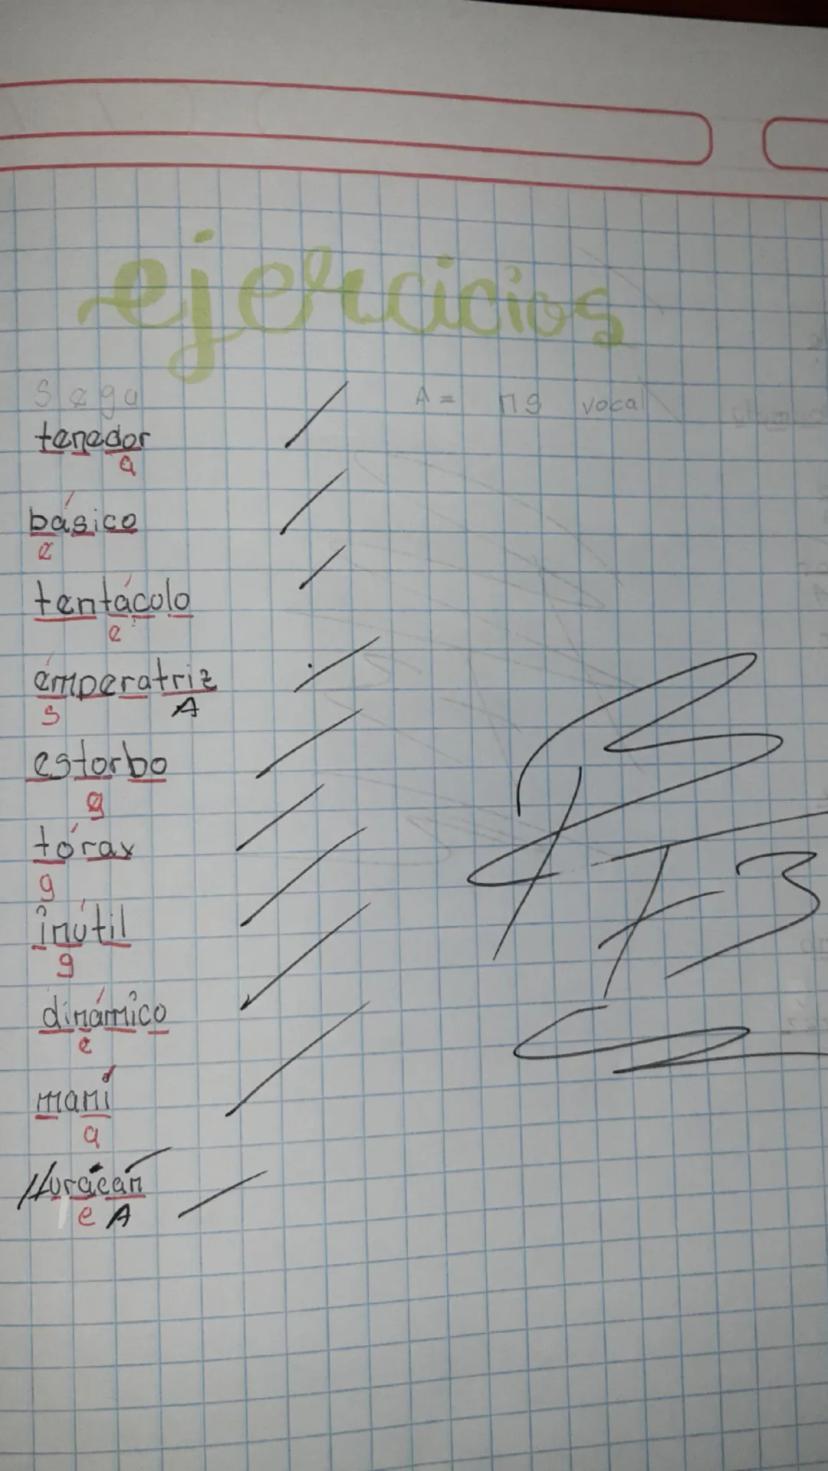 ejercicios
S e g a A = n s vocal
tenedor
a
básico
e
tentácolo
e
émperatriz
s A
estorbo
g
tórax
g
inútil
g
dinámico
e
maní
a
Huracán
e A